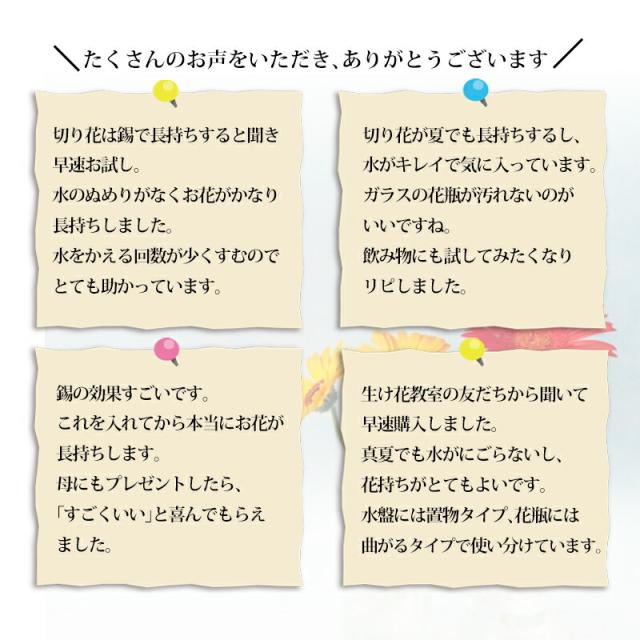 たくさんのお声をいただき、ありがとうございます
切り花は錫で長持ちすると聞き
早速お試し。
水のぬめりがなくお花がかなり
長持ちしました。
水をかえる回数が少くすむので
とても助かっています。
切り花が夏でも長持ちするし、
水がキレイで気に入っています。
ガラスの花瓶が汚れないのが
いいですね。
飲み物にも試してみたくなり
リピしました。
錫の効果すごいです。
これを入れてから本当にお花が
長持ちします。
母にもプレゼントしたら、
「すごくいい」と喜んでもらえ
ました。
生け花教室の友だちから聞いて
早速購入しました。
真夏でも水がにごらないし、
花持ちがとてもよいです。
水盤には置物タイプ、花瓶には
曲がるタイプで使い分けています。